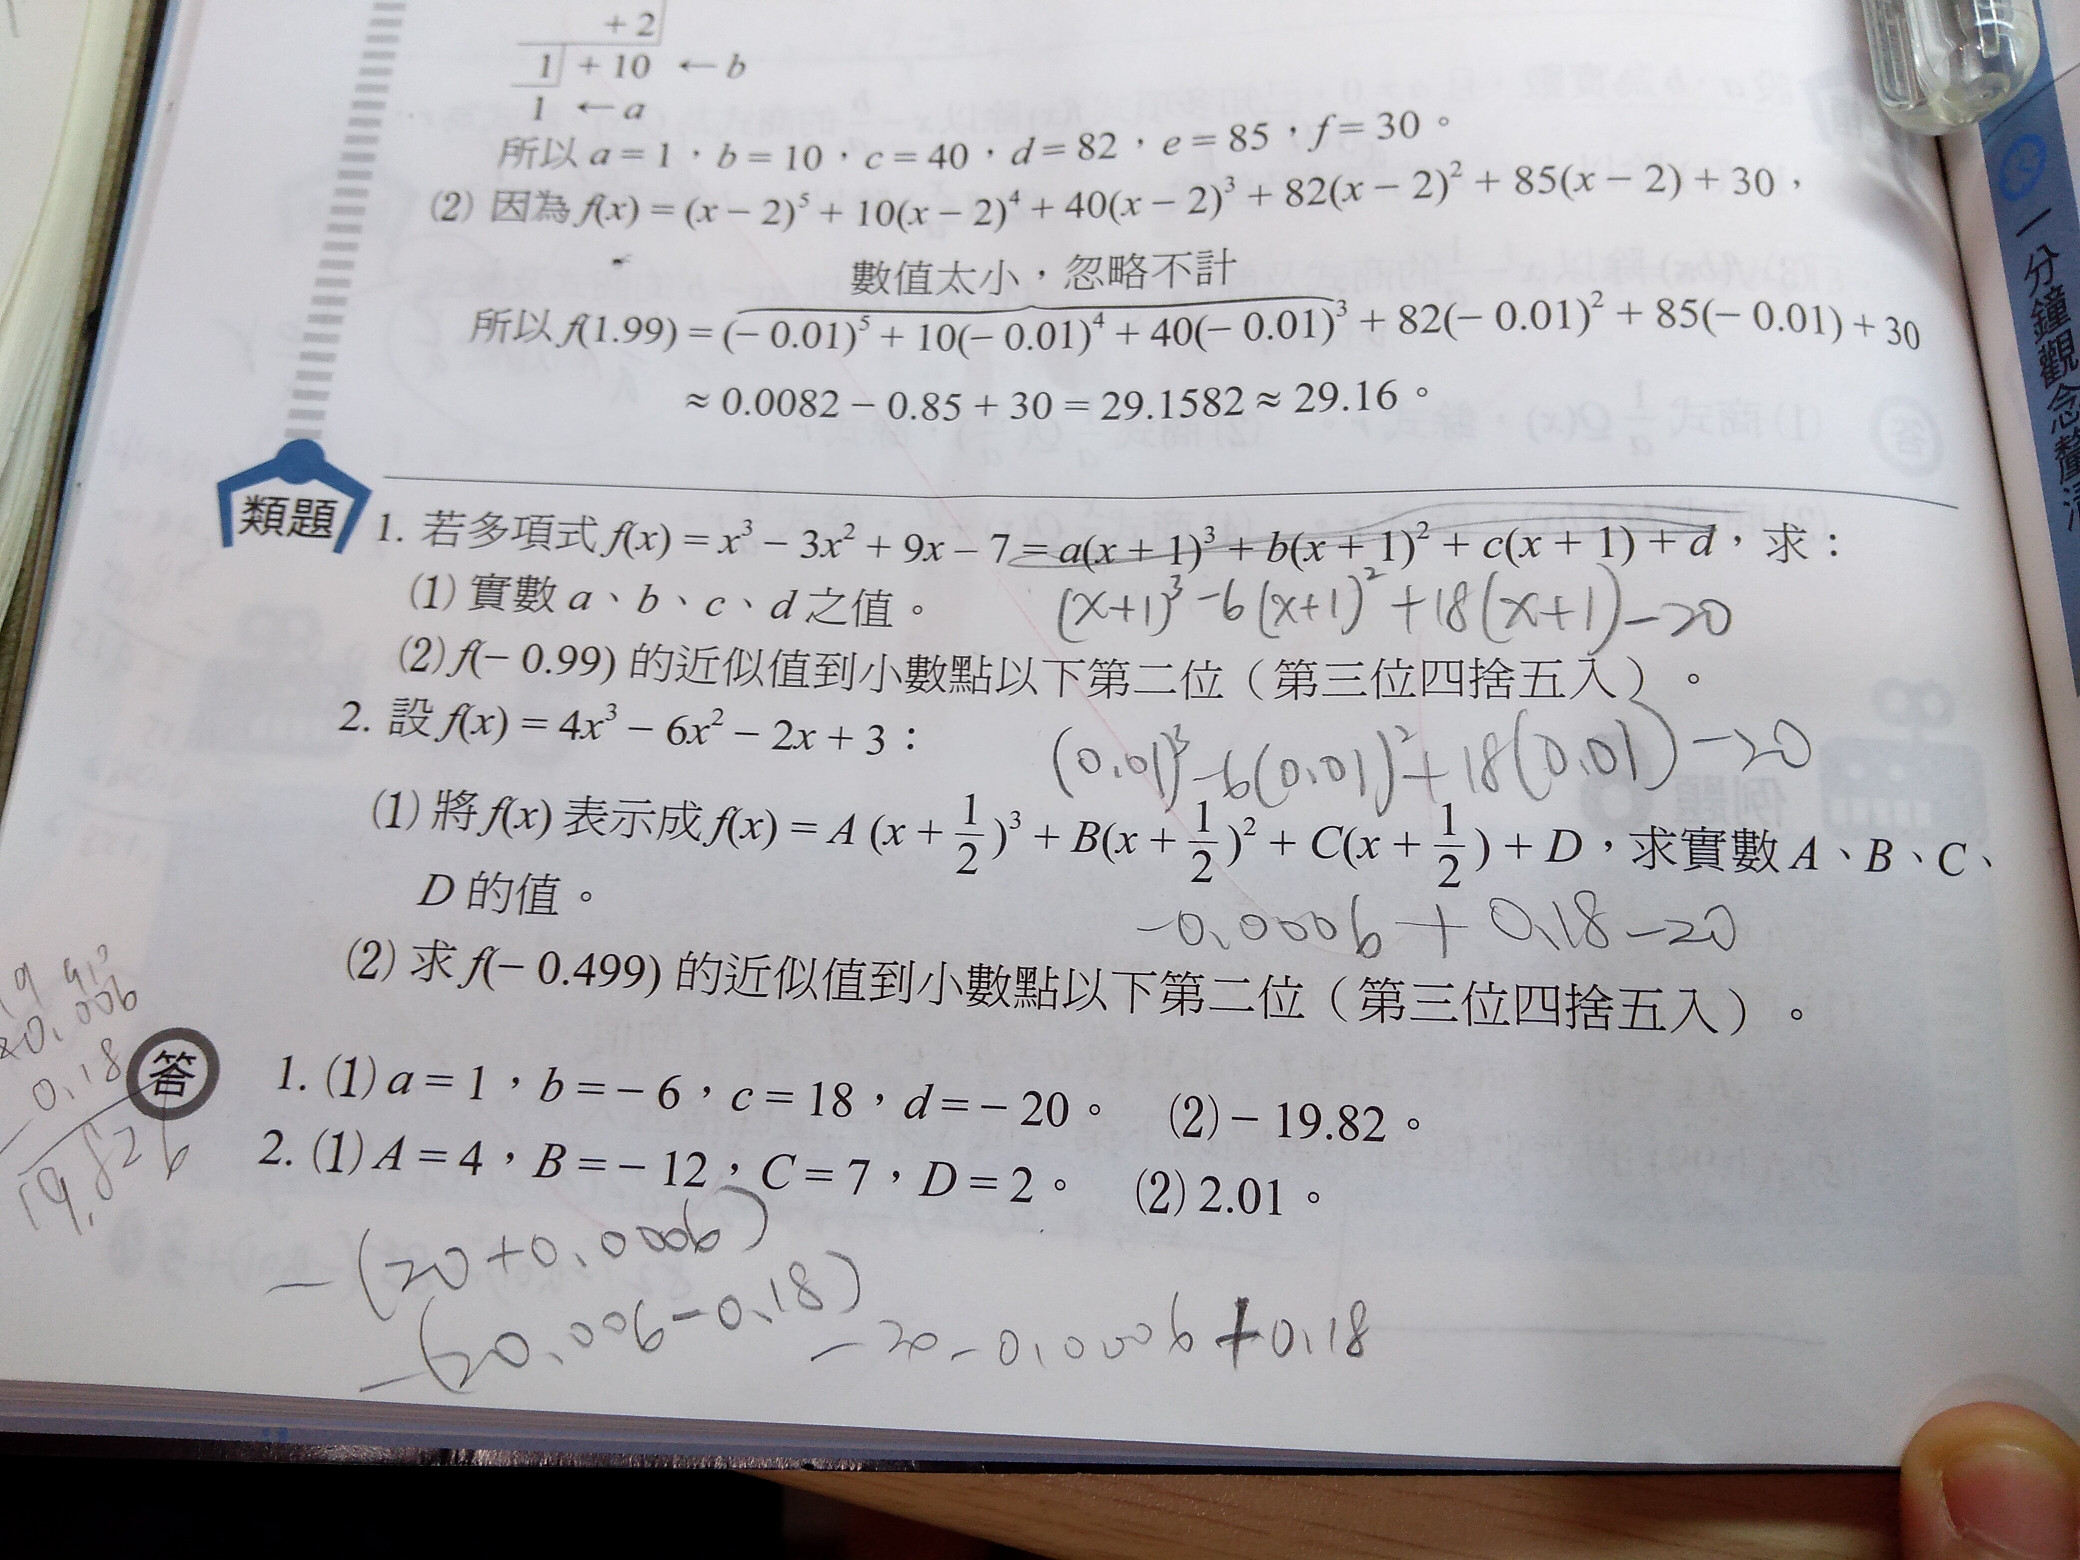 + 2
1 + 10 ← b
1 ← a
所以 a = 1，b = 10，c = 40，d = 82，e = 85，f = 30。
(2) 因為 f(x) = (x − 2)⁵ + 10(x − 2)⁴ + 40(x − 2)³ + 82(x − 2)² + 85(x − 2) + 30，
數值太小，忽略不計
所以 f(1.99) = (− 0.01)⁵ + 10(− 0.01)⁴ + 40(− 0.01)³ + 82(− 0.01)² + 85(− 0.01) + 30
≈ 0.0082 − 0.85 + 30 = 29.1582 ≈ 29.16。
類題
1. 若多項式 f(x) = x³ − 3x² + 9x − 7 = a(x + 1)³ + b(x + 1)² + c(x + 1) + d，求：
(1) 實數 a、b、c、d 之值。
(x+1)³ −6(x+1)² +18(x+1) −20
(2) f(− 0.99) 的近似值到小數點以下第二位（第三位四捨五入）。
2. 設 f(x) = 4x³ − 6x² − 2x + 3：
(0.01)³ −6(0.01)² + 18(0.01) −20
(1) 將 f(x) 表示成 f(x) = A (x + 1/2)³ + B(x + 1/2)² + C(x + 1/2) + D，求實數 A、B、C、
D 的值。
−0.0006 + 0.18 −20
(2) 求 f(− 0.499) 的近似值到小數點以下第二位（第三位四捨五入）。
20.006
− 0.18
19.826
答
1. (1) a = 1，b = − 6，c = 18，d = − 20。 (2) − 19.82。
2. (1) A = 4，B = − 12，C = 7，D = 2。 (2) 2.01。
−(20+0.0006)
−(20.006−0.18)
−20−0.0006+0.18
一分鐘觀念釐清